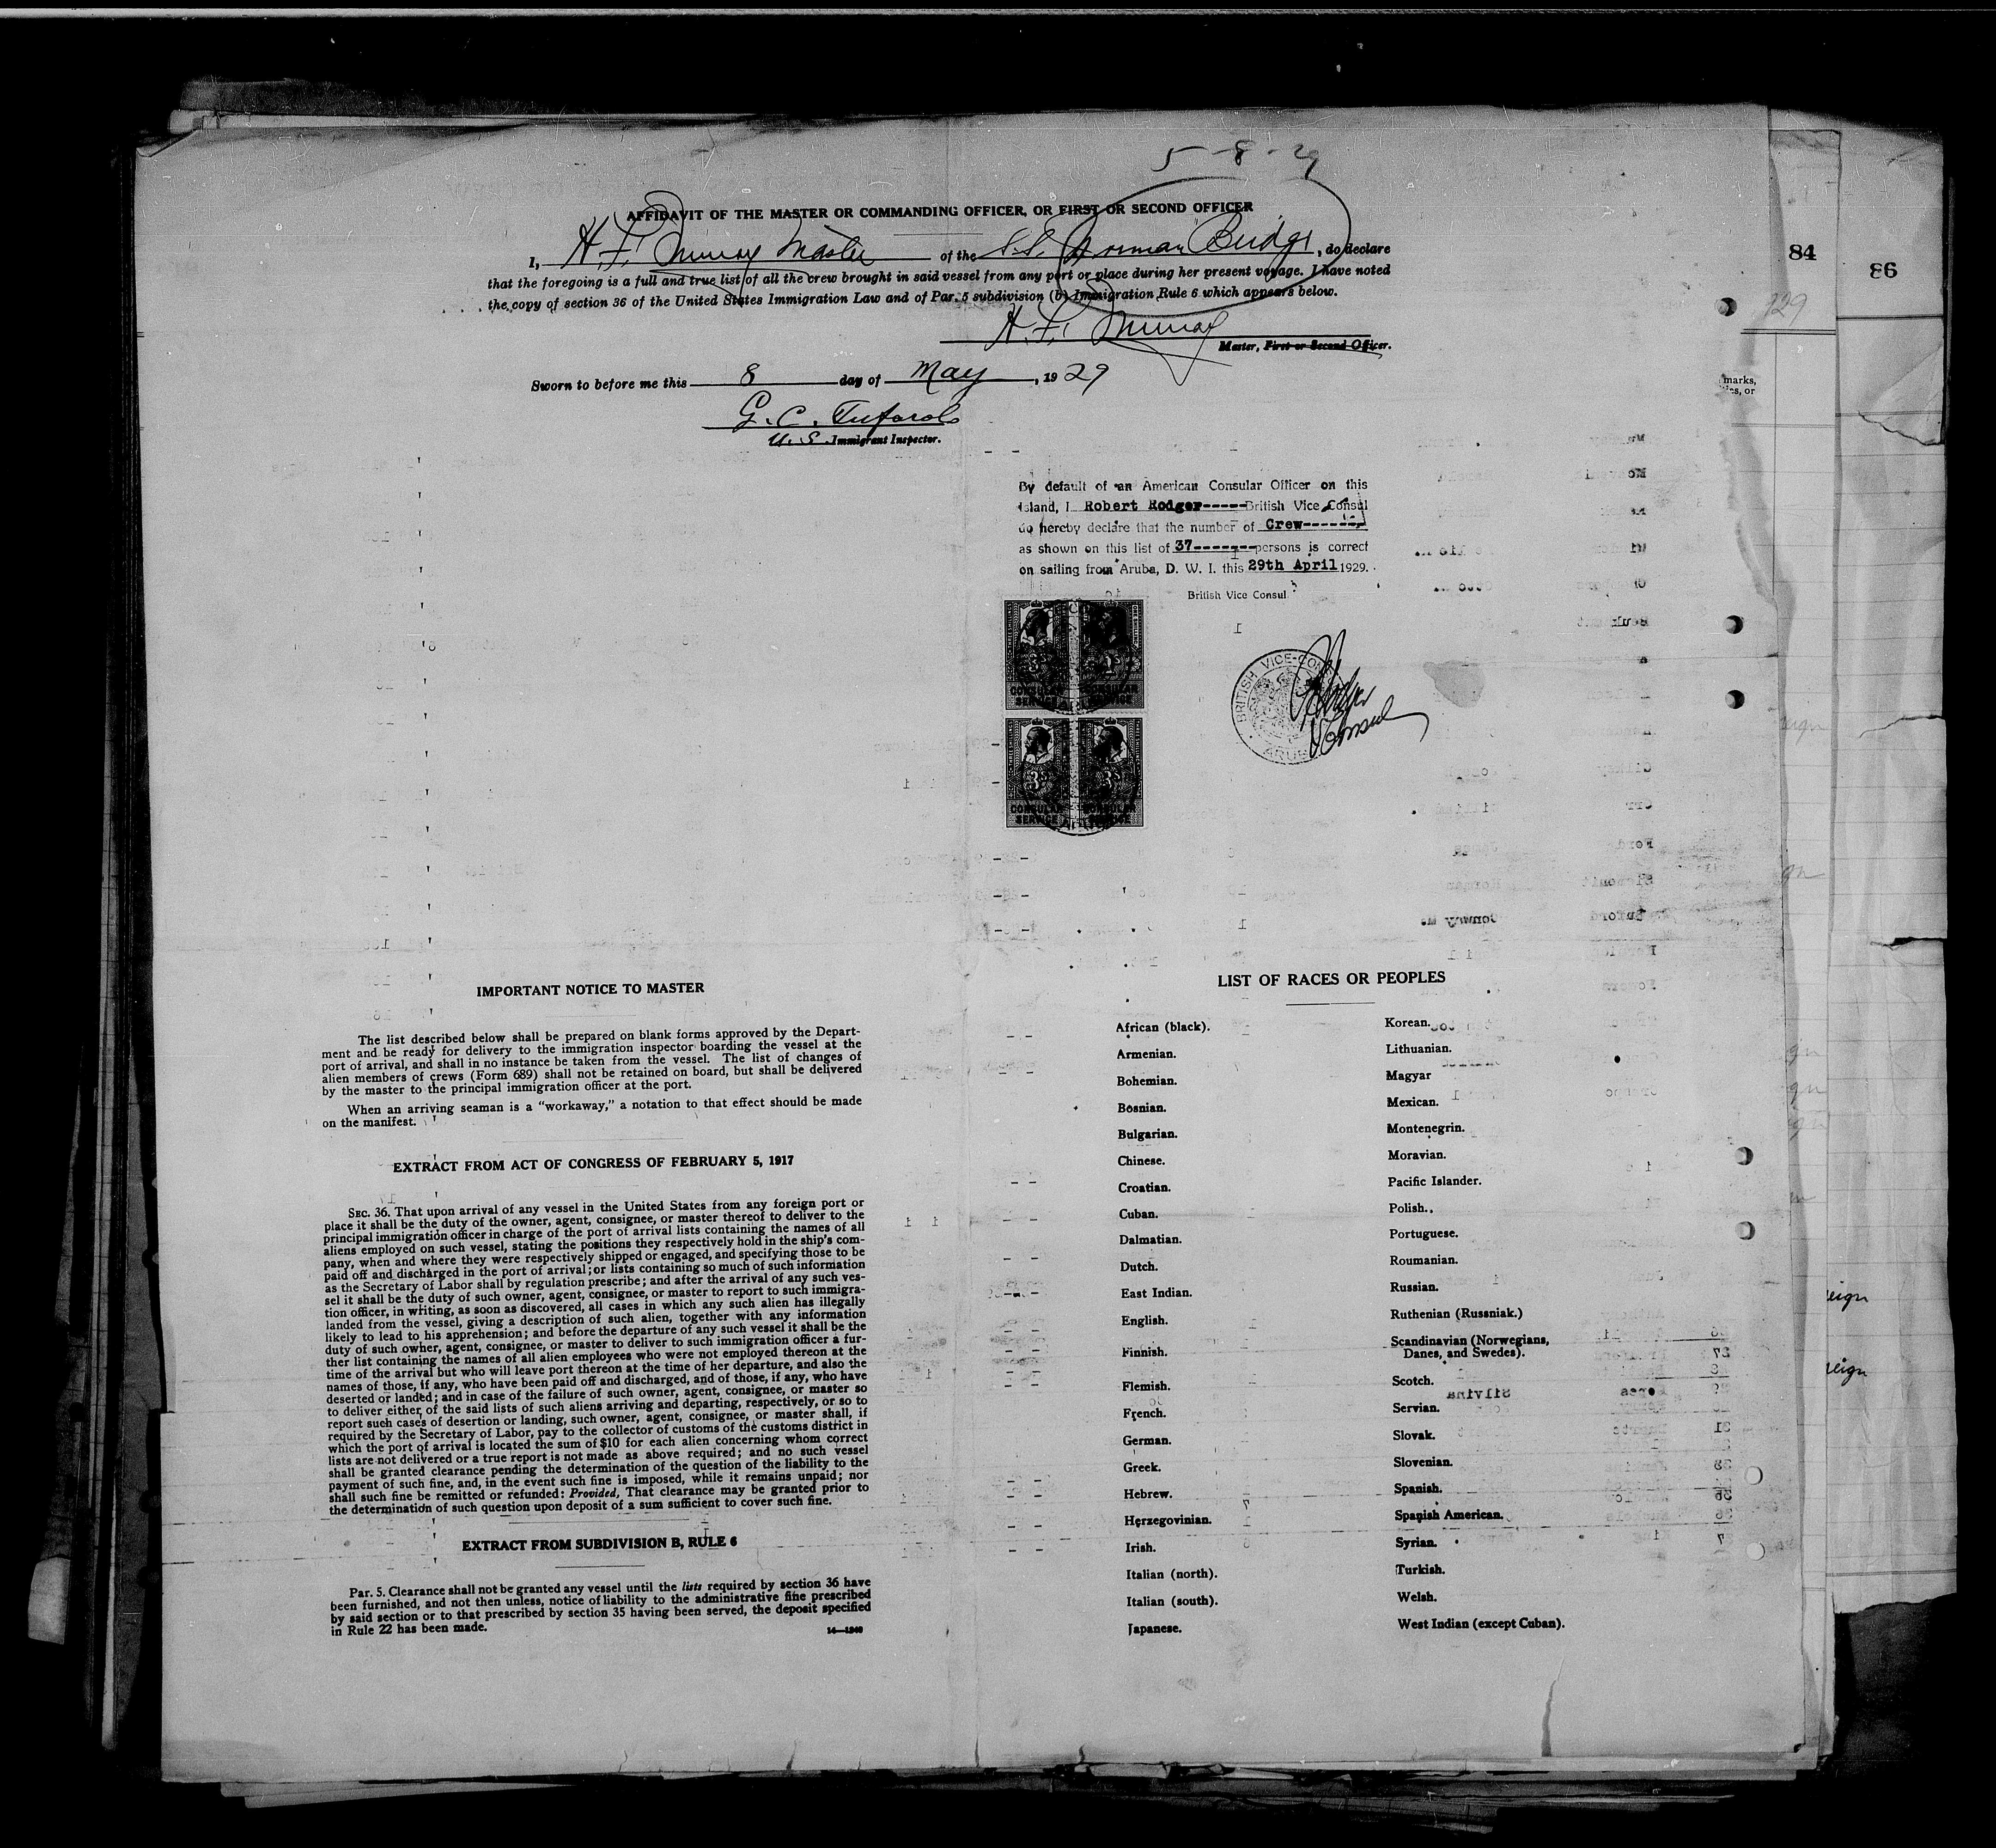 5-8-29
AFFIDAVIT OF THE MASTER OR COMMANDING OFFICER, OR FIRST OR SECOND OFFICER
I, H. F. Murray Master of the S.S. Norman Bridge, do declare
that the foregoing is a full and true list of all the crew brought in said vessel from any port or place during her present voyage. I have noted
the copy of section 36 of the United States Immigration Law and of Par. 5 subdivision (b) Immigration Rule 6 which appears below.
H. F. Murray
Master, First or Second Officer.
Sworn to before me this 8 day of May, 1929
G. C.
U. S. Immigrant Inspector.
By default of an American Consular Officer on this
Island, I Robert Rodger-----British Vice Consul
do hereby declare that the number of Crew------
as shown on this list of 37-------persons is correct
on sailing from Aruba, D. W. I. this 29th April 1929.
British Vice Consul
CONSULAR SERVICE
CONSULAR SERVICE
CONSULAR SERVICE
CONSULAR SERVICE
BRITISH VICE-CON
ARUBA
V Consul
IMPORTANT NOTICE TO MASTER
The list described below shall be prepared on blank forms approved by the Depart-
ment and be ready for delivery to the immigration inspector boarding the vessel at the
port of arrival, and shall in no instance be taken from the vessel. The list of changes of
alien members of crews (Form 689) shall not be retained on board, but shall be delivered
by the master to the principal immigration officer at the port.
When an arriving seaman is a "workaway," a notation to that effect should be made
on the manifest.
EXTRACT FROM ACT OF CONGRESS OF FEBRUARY 5, 1917
SEC. 36. That upon arrival of any vessel in the United States from any foreign port or
place it shall be the duty of the owner, agent, consignee, or master thereof to deliver to the
principal immigration officer in charge of the port of arrival lists containing the names of all
aliens employed on such vessel, stating the positions they respectively hold in the ship's com-
pany, when and where they were respectively shipped or engaged, and specifying those to be
paid off and discharged in the port of arrival; or lists containing so much of such information
as the Secretary of Labor shall by regulation prescribe; and after the arrival of any such ves-
sel it shall be the duty of such owner, agent, consignee, or master to report to such immigra-
tion officer, in writing, as soon as discovered, all cases in which any such alien has illegally
landed from the vessel, giving a description of such alien, together with any information
likely to lead to his apprehension; and before the departure of any such vessel it shall be the
duty of such owner, agent, consignee, or master to deliver to such immigration officer a fur-
ther list containing the names of all alien employees who were not employed thereon at the
time of the arrival but who will leave port thereon at the time of her departure, and also the
names of those, if any, who have been paid off and discharged, and of those, if any, who have
deserted or landed; and in case of the failure of such owner, agent, consignee, or master so
to deliver either of the said lists of such aliens arriving and departing, respectively, or so to
report such cases of desertion or landing, such owner, agent, consignee, or master shall, if
required by the Secretary of Labor, pay to the collector of customs of the customs district in
which the port of arrival is located the sum of $10 for each alien concerning whom correct
lists are not delivered or a true report is not made as above required; and no such vessel
shall be granted clearance pending the determination of the question of the liability to the
payment of such fine, and, in the event such fine is imposed, while it remains unpaid; nor
shall such fine be remitted or refunded: Provided, That clearance may be granted prior to
the determination of such question upon deposit of a sum sufficient to cover such fine.
EXTRACT FROM SUBDIVISION B, RULE 6
Par. 5. Clearance shall not be granted any vessel until the lists required by section 36 have
been furnished, and not then unless, notice of liability to the administrative fine prescribed
by said section or to that prescribed by section 35 having been served, the deposit specified
in Rule 22 has been made.
14—1940
LIST OF RACES OR PEOPLES
African (black).
Armenian.
Bohemian.
Bosnian.
Bulgarian.
Chinese.
Croatian.
Cuban.
Dalmatian.
Dutch.
East Indian.
English.
Finnish.
Flemish.
French.
German.
Greek.
Hebrew.
Herzegovinian.
Irish.
Italian (north).
Italian (south).
Japanese.
Korean.
Lithuanian.
Magyar
Mexican.
Montenegrin.
Moravian.
Pacific Islander.
Polish.
Portuguese.
Roumanian.
Russian.
Ruthenian (Russniak.)
Scandinavian (Norwegians,
Danes, and Swedes).
Scotch.
Servian.
Slovak.
Slovenian.
Spanish.
Spanish American.
Syrian.
Turkish.
Welsh.
West Indian (except Cuban).
84
86
129
marks,
or
eign
reign